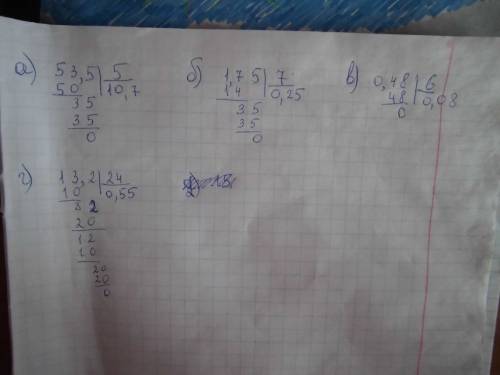 а) 53,5 | 5
50 | 10,7
35
35
0
б) 1,75 | 7
14 | 0,25
35
35
0
в) 0,48 | 6
48 | 0,08
0
г) 13,2 | 24
10 | 0,55
3 2
20
12
10
20
20
0